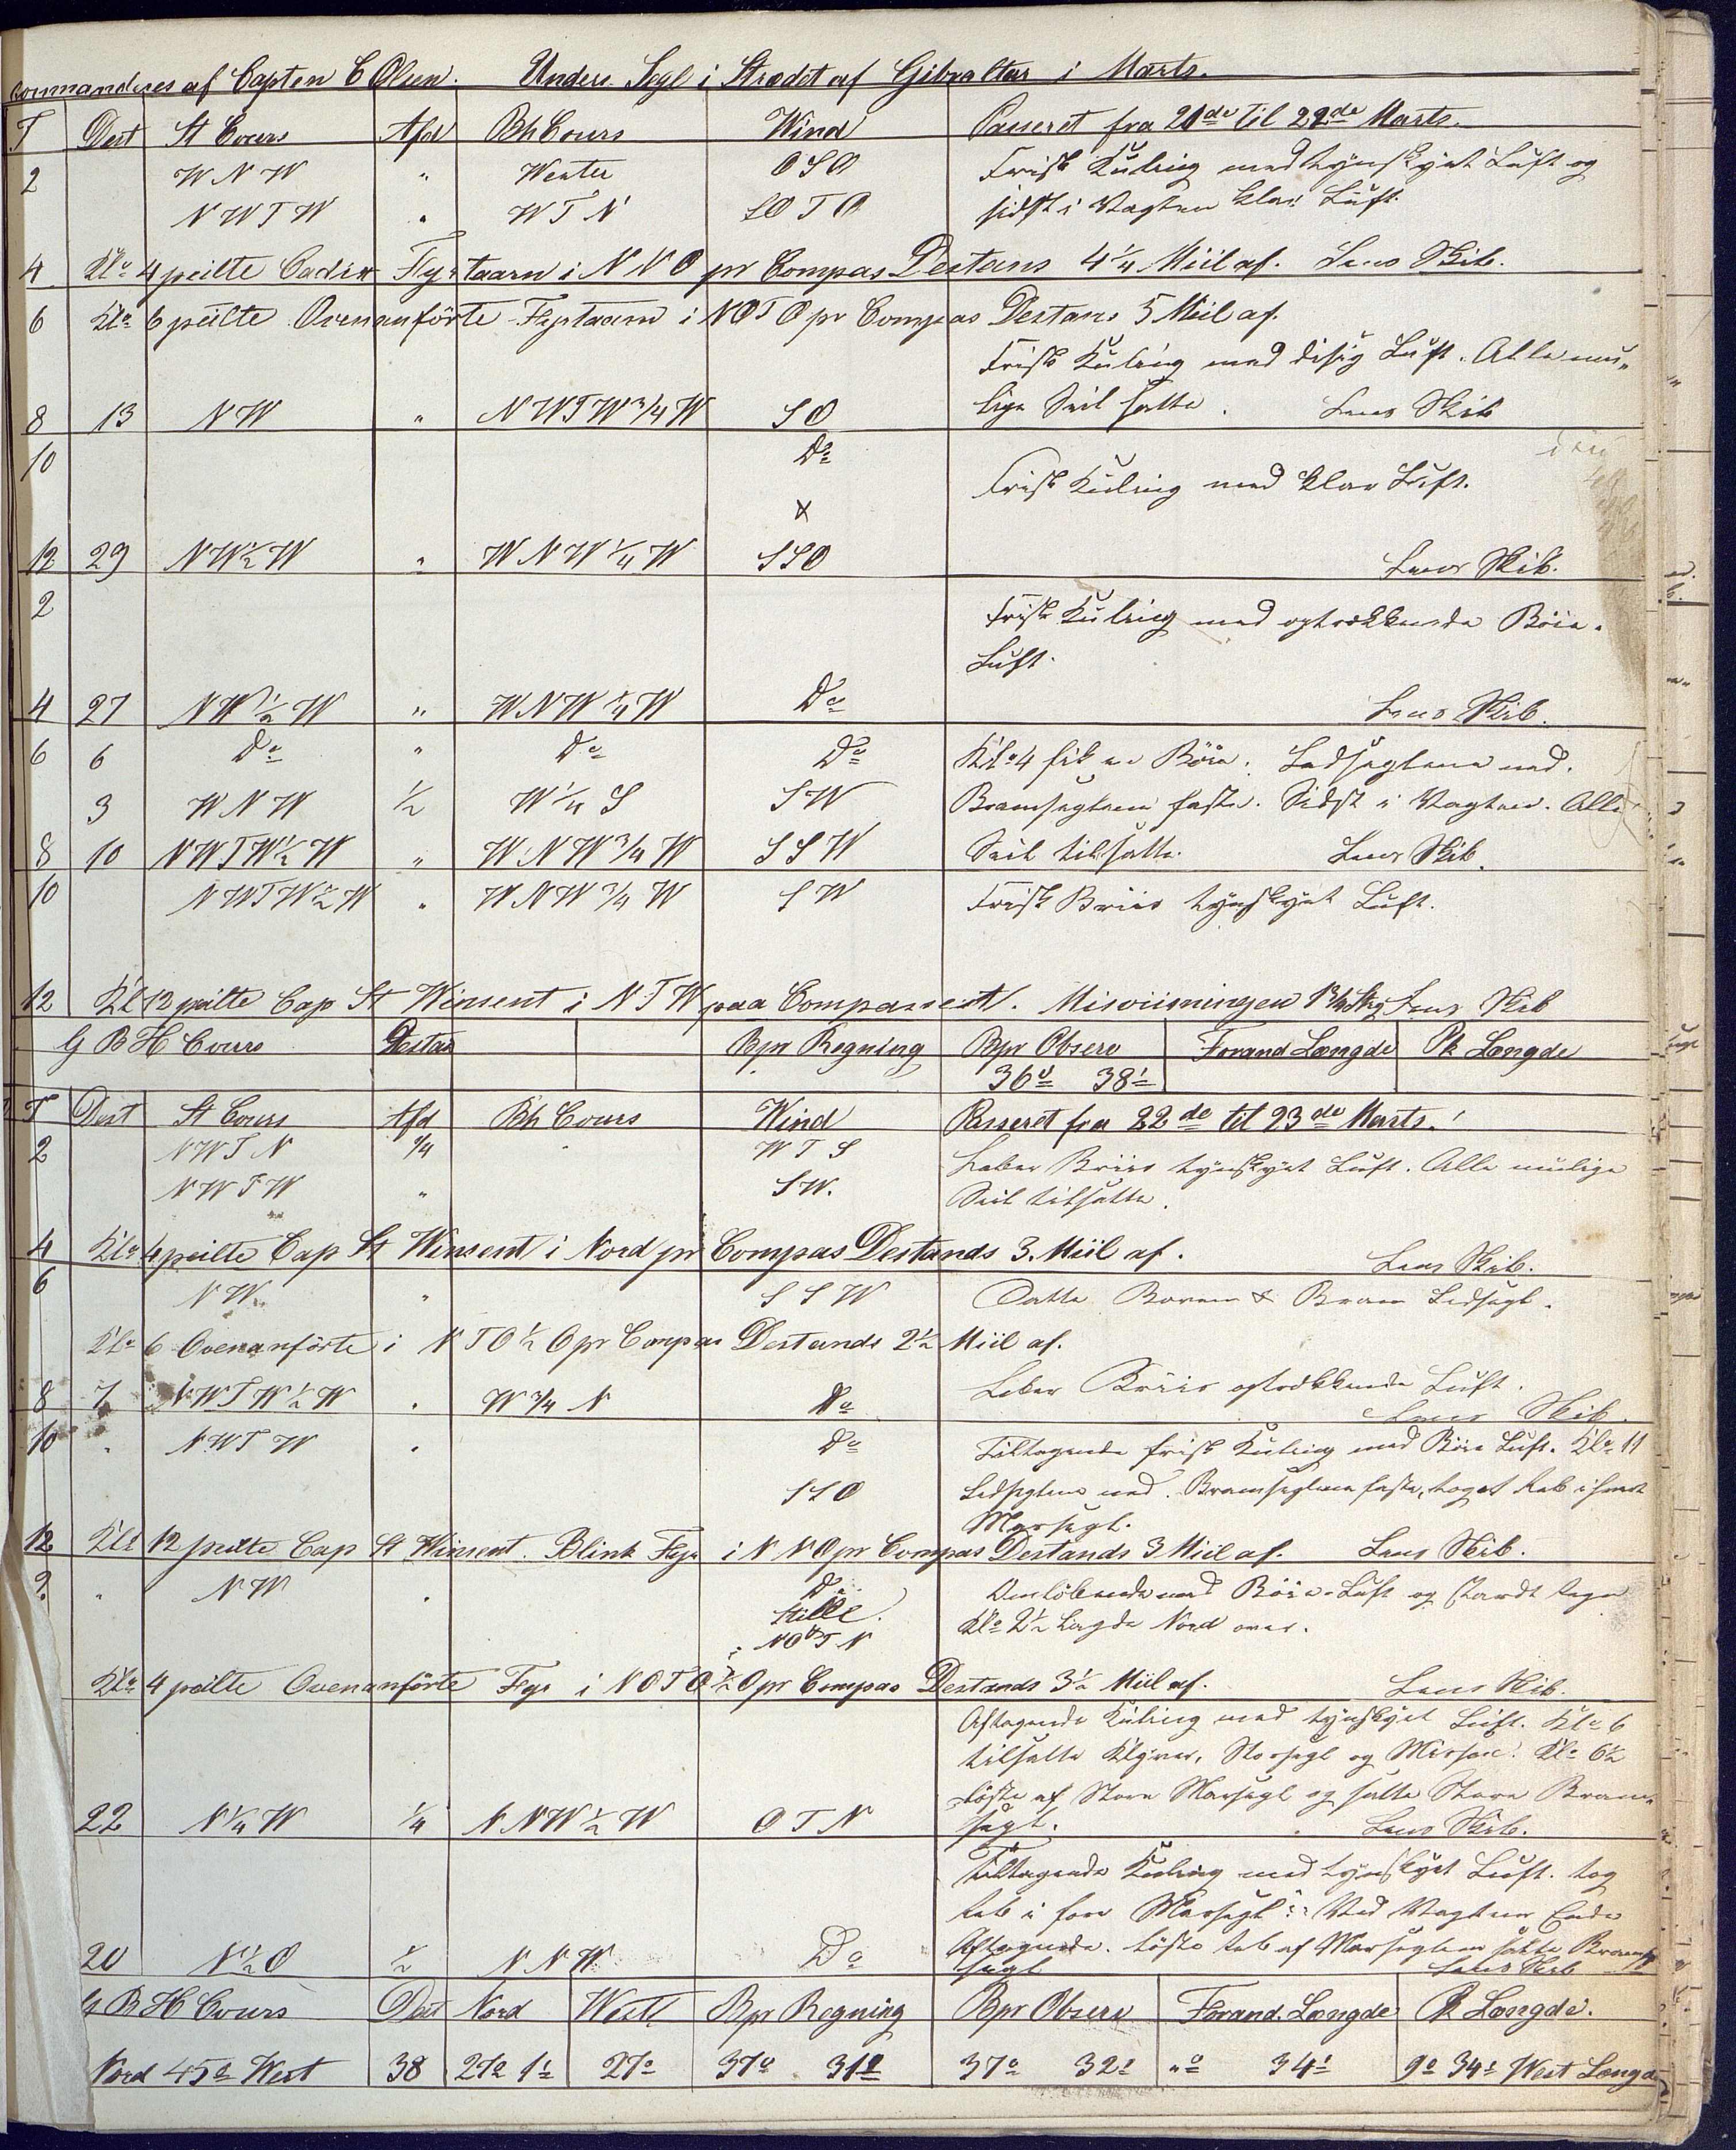 Commanderes af Capten C Olsen. Unders. Segl i Strædet af Gibraltar i Marts.
T Dest St Cours Afd Bh Cours Wind Passeret fra 21de til 22de Marts.
2 WNW " Wester OSO Frisk Kuling med tynskyet Luft og
NWTW " WTN SOTO sidst i Vagten klar Luft.
4 Klo 4 peilte Cadix Fyrtaarn i NNO pr Compas Destans 4 1/4 Miil af. Lens Skib.
6 Klo 6 peilte Ovenanförte Fyrtaarn i NOTO pr Compas Destans 5 Miil af.
Frisk Kuling med disig Luft. Alle mu„
8 13 NW " NWTW 3/4 W SO lige Seil satte. Lens Skib
10 Do
Frisk Kuling med klar Luft.
12 29 NW 1/2 W " WNW 1/4 W SSO Lens Skib.
2 Frisk Kuling med optrækkende Böie-
Luft.
4 27 NW 1/2 W " WNW 1/4 W Do Lens Skib.
6 6 Do " Do Do Klo 4 fik en Böie. Ledseglene ned.
3 WNW 1/2 W 1/4 S SW Bramseglene faste. Sidst i Vagten. Alle
8 10 NWTW 1/2 W " WNW 3/4 W SSW Seil tilsatte. Lens Skib.
10 NWTW 1/2 W " WNW 3/4 W SW Frisk Briis tynskyet Luft.
12 Kl 12 peilte Cap St Winsent i NTW paa Compasset. Misviisningen Lens Skib
G B H Cours Destan Bpr Regning Bpr Observ Forand Længde Pk Længde
36° 38'
T Dest St Cours Afd Bh Cours Wind Passeret fra 22de til 23de Marts.
2 NWTN 1/4 WTS Laber Briis tynskyet Luft. Alle mulige
NWTW " SW. Seil tilsatte.
4 Klo 4 peilte Cap St Winsent i Nord pr Compas Destands 3. Miil af. Lens Skib.
6 NW " SSW Satte Boven & Bram Ledsegl.
Klo 6 Ovenanförte i NTO 1/2 O pr Compas Destands 2 1/2 Miil af.
8 7 NWTW 1/2 W " W 3/4 N Do Laber Briis optrækkende Luft.
Lens Skib.
10 " NWTW " Do Tiltagende frisk Kuling med Böie Luft. Klo 11
SSO Ledseglene ned. Bramseglene faste, toget Reb i
Marssegl.
12 Klo 12 peilte Cap St Winsent. Blink Fyr i NNO pr Compas Destands 3 Miil af. Lens Skib.
2 " NW " Do Omlöbende med Böie-Luft og stærdt regn
Stille. Klo 2 1/2 lagde Nord over.
NOTN
Klo 4 peilte Ovenanförte Fyr i NOTO 1/2 O pr Compas Destands 3 1/2 Miil af. Lens Skib.
Aftagende Kuling med tynskyet Luft. Klo 6
tilsatte Klyver, Storsegl og Mersan. Klo 6 1/2
löste af Store Marssegl og satte Store Bram-
22 N 1/4 W 1/4 NNW 1/2 W OTN segl. Lens Skib.
Tiltagende Kuling med tynskyet Luft. tog
Reb i fore Marssegl. Ved Vagtens Ende
20 N 1/2 O 1/2 NNW Do Aftagende. löste reb af Marseglene satte Bram-
segl Lens Skib
G B H Cours Dest Nord West Bpr Regning Bpr Observ Forand. Længde Pk Længde.
Nord 45° West 38 27° 1' 27° 37° 31' 37° 32' "° 34' 9° 34' West Længde